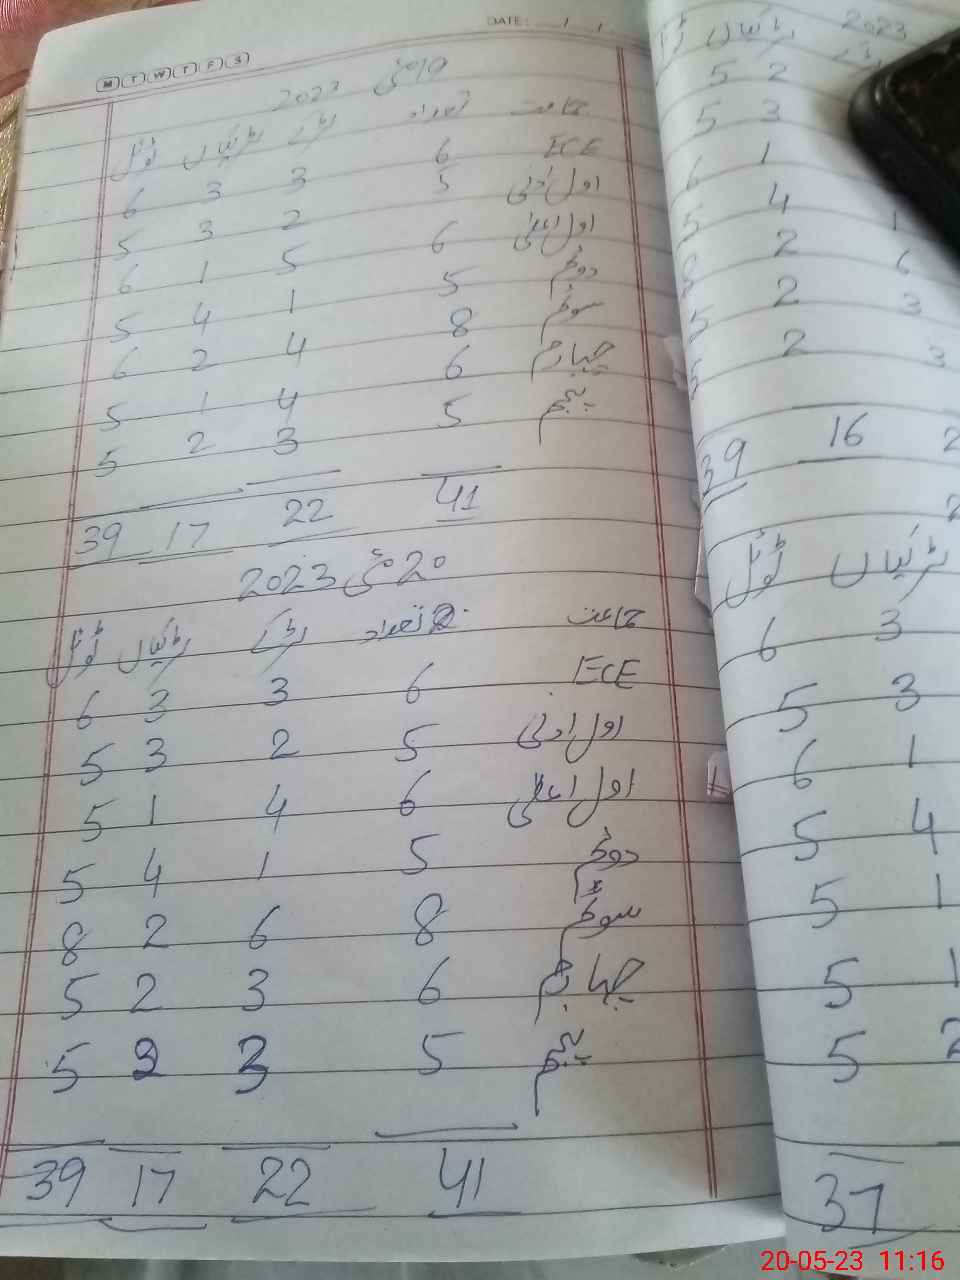 M T W T F S
DATE: / /
19 مئی 2023
جماعت تعداد لڑکے لڑکیاں ٹوٹل
ECE 6 3 3 6
اول ادنیٰ 5 2 3 5
اول اعلیٰ 6 5 1 6
دوئم 5 1 4 5
سوئم 8 4 2 6
چہارم 6 4 1 5
پنجم 5 3 2 5
41 22 17 39
20 مئی 2023
جماعت تعداد لڑکے لڑکیاں ٹوٹل
ECE 6 3 3 6
اول ادنیٰ 5 2 3 5
اول اعلیٰ 6 4 1 5
دوئم 5 1 4 5
سوئم 8 6 2 8
چہارم 6 3 2 5
پنجم 5 3 2 5
41 22 17 39
2023
لڑکیاں ٹوٹل
2 5
3 5
1 6
1 4 5
6 2 8
3 2 5
3 2 5
2 16 39
2
لڑکیاں ٹوٹل
3 6
3 5
1 6
4 5
1 5
1 5
2 5
37
20-05-23 11:16